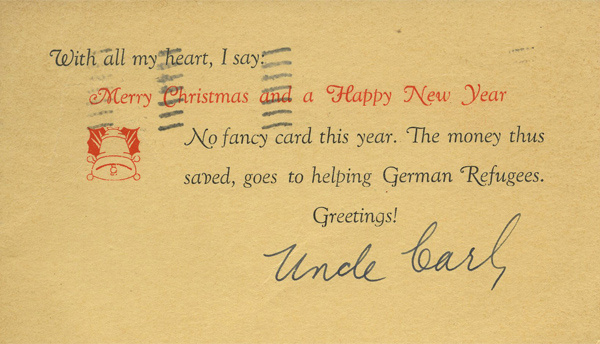 With all my heart, I say:
Merry Christmas and a Happy New Year
No fancy card this year. The money thus
saved, goes to helping German Refugees.
Greetings!
Uncle Carl